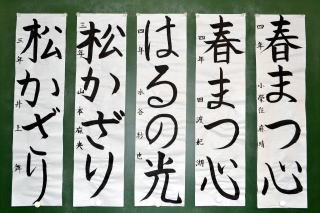 春まつ心
四年 小󠄁澄佳麻晴
春まつ心
四年 田波杞湖
はるの光
四年 水谷彩也
松かざり
三年 山本麻央
松かざり
三年 井上舞